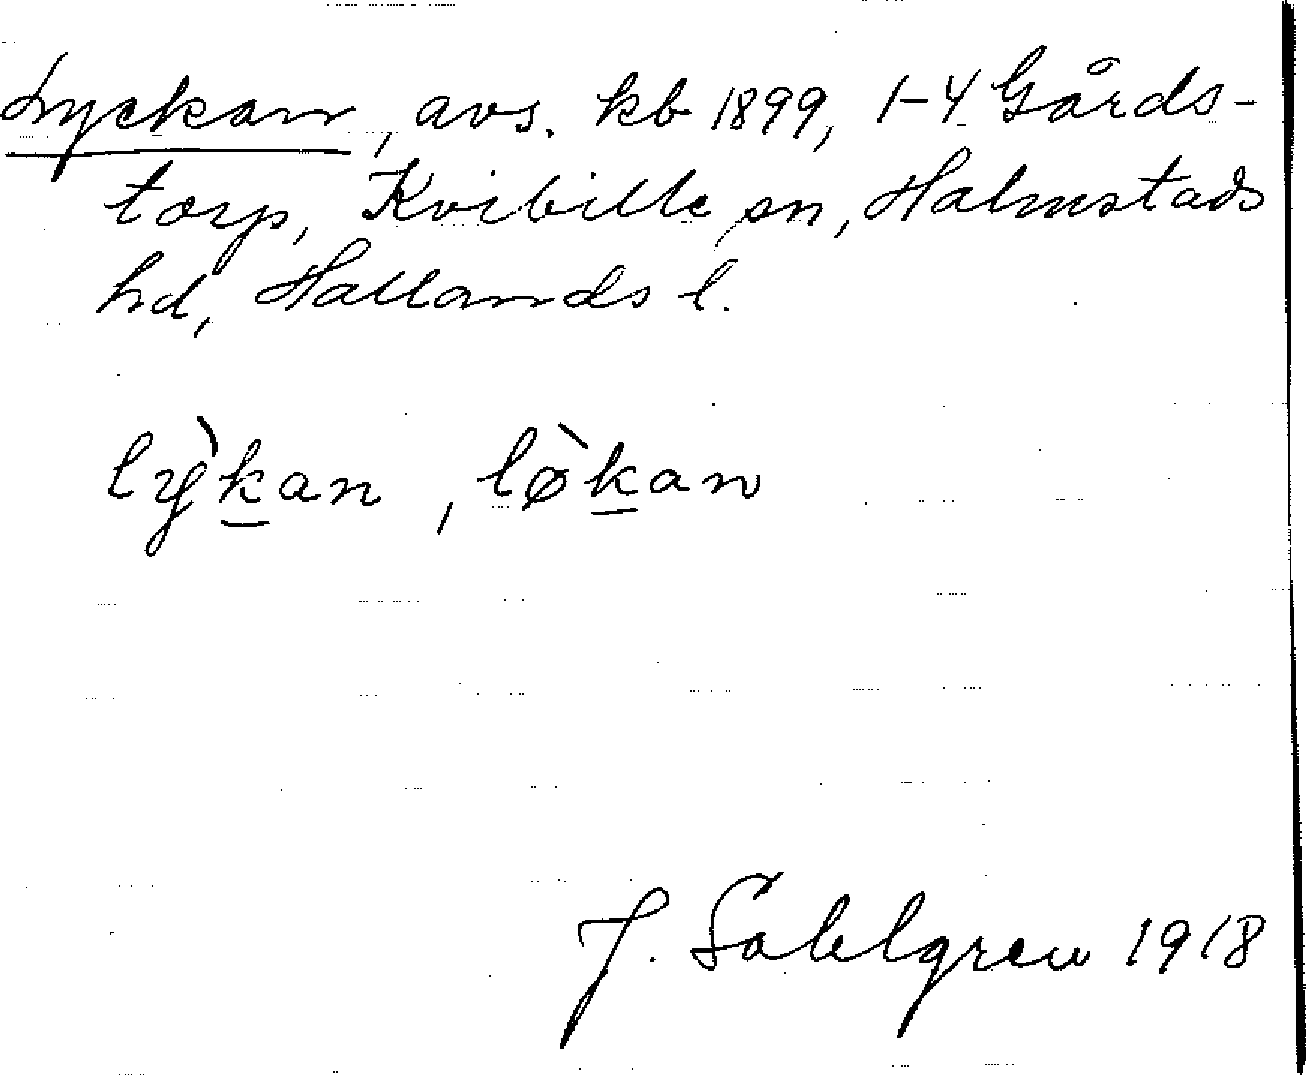 Lyckan, avs. kb 1899, 1-4 Gårds-
torp, Kvibille sn, Halmstads
hd, Hallands l.
lỳk̲an, lø̀k̲an
J. Sahlgren 1918